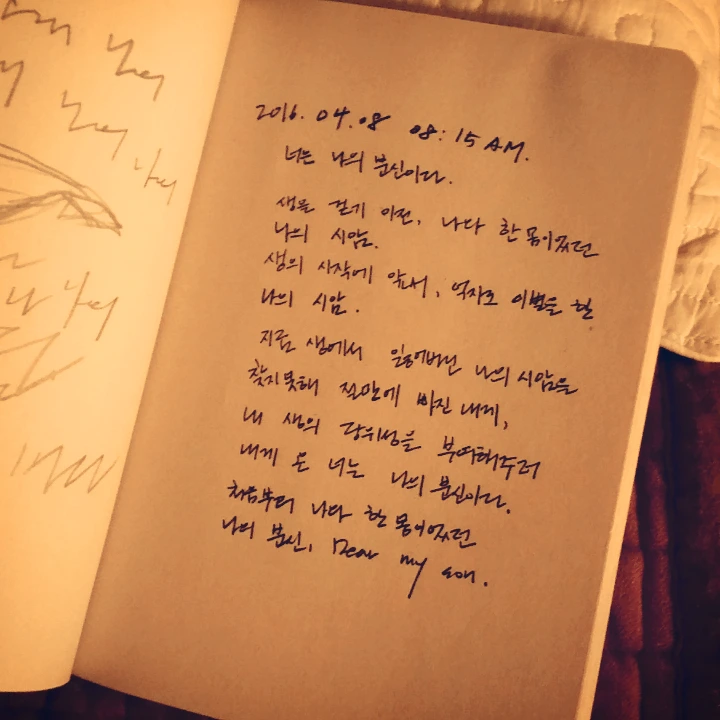 나의
나의
나의
나의
나의
2016. 04. 08 08:15 AM.
너는 나의 분신이다.
생을 걷기 이전, 나와 한 몸이었던
나의 시암.
생의 시작에 앞서, 억지로 이별을 한
나의 시암.
지금 생에서 잃어버린 나의 시암을
찾지 못해 절망에 빠진 내게,
내 생의 당위성을 부여해주러
내게 온 너는 나의 분신이다.
처음부터 나와 한 몸이었던
나의 분신, Dear my son.